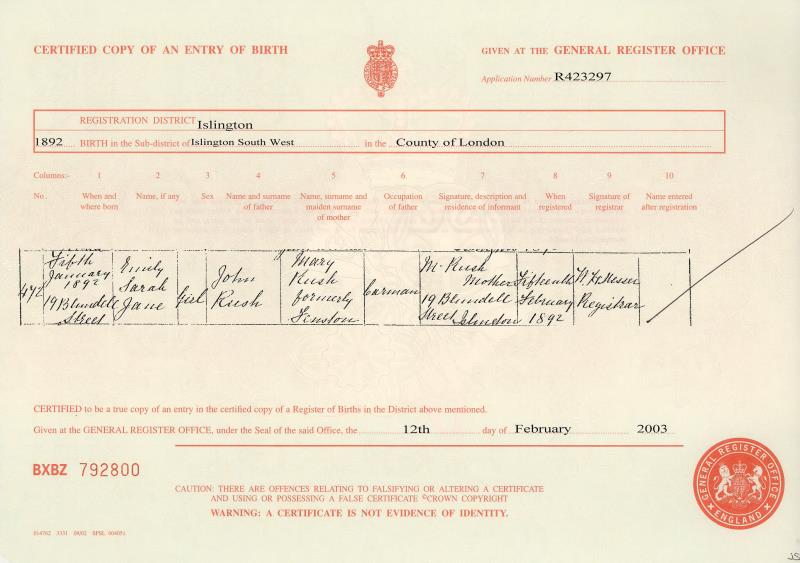 CERTIFIED COPY OF AN ENTRY OF BIRTH
GIVEN AT THE GENERAL REGISTER OFFICE
Application Number R423297
REGISTRATION DISTRICT Islington
1892 BIRTH in the Sub-district of Islington South West in the County of London
Columns:- 1 2 3 4 5 6 7 8 9 10
No. When and where born Name, if any Sex Name and surname of father Name, surname and maiden surname of mother Occupation of father Signature, description and residence of informant When registered Signature of registrar Name entered after registration
472
Fifth
January
1892
19 Blundell
Street
Emily
Sarah
Jane
Girl
John
Rush
Mary
Rush
formerly
Carman
M. Rush
Mother
19 Blundell
Street Islington
Fifteenth
February
1892
Registrar
CERTIFIED to be a true copy of an entry in the certified copy of a Register of Births in the District above mentioned.
Given at the GENERAL REGISTER OFFICE, under the Seal of the said Office, the 12th day of February 2003
BXBZ 792800
CAUTION: THERE ARE OFFENCES RELATING TO FALSIFYING OR ALTERING A CERTIFICATE
AND USING OR POSSESSING A FALSE CERTIFICATE ©CROWN COPYRIGHT
WARNING: A CERTIFICATE IS NOT EVIDENCE OF IDENTITY.
GENERAL REGISTER OFFICE
ENGLAND
014762 3331 09/02 SPSL 004051